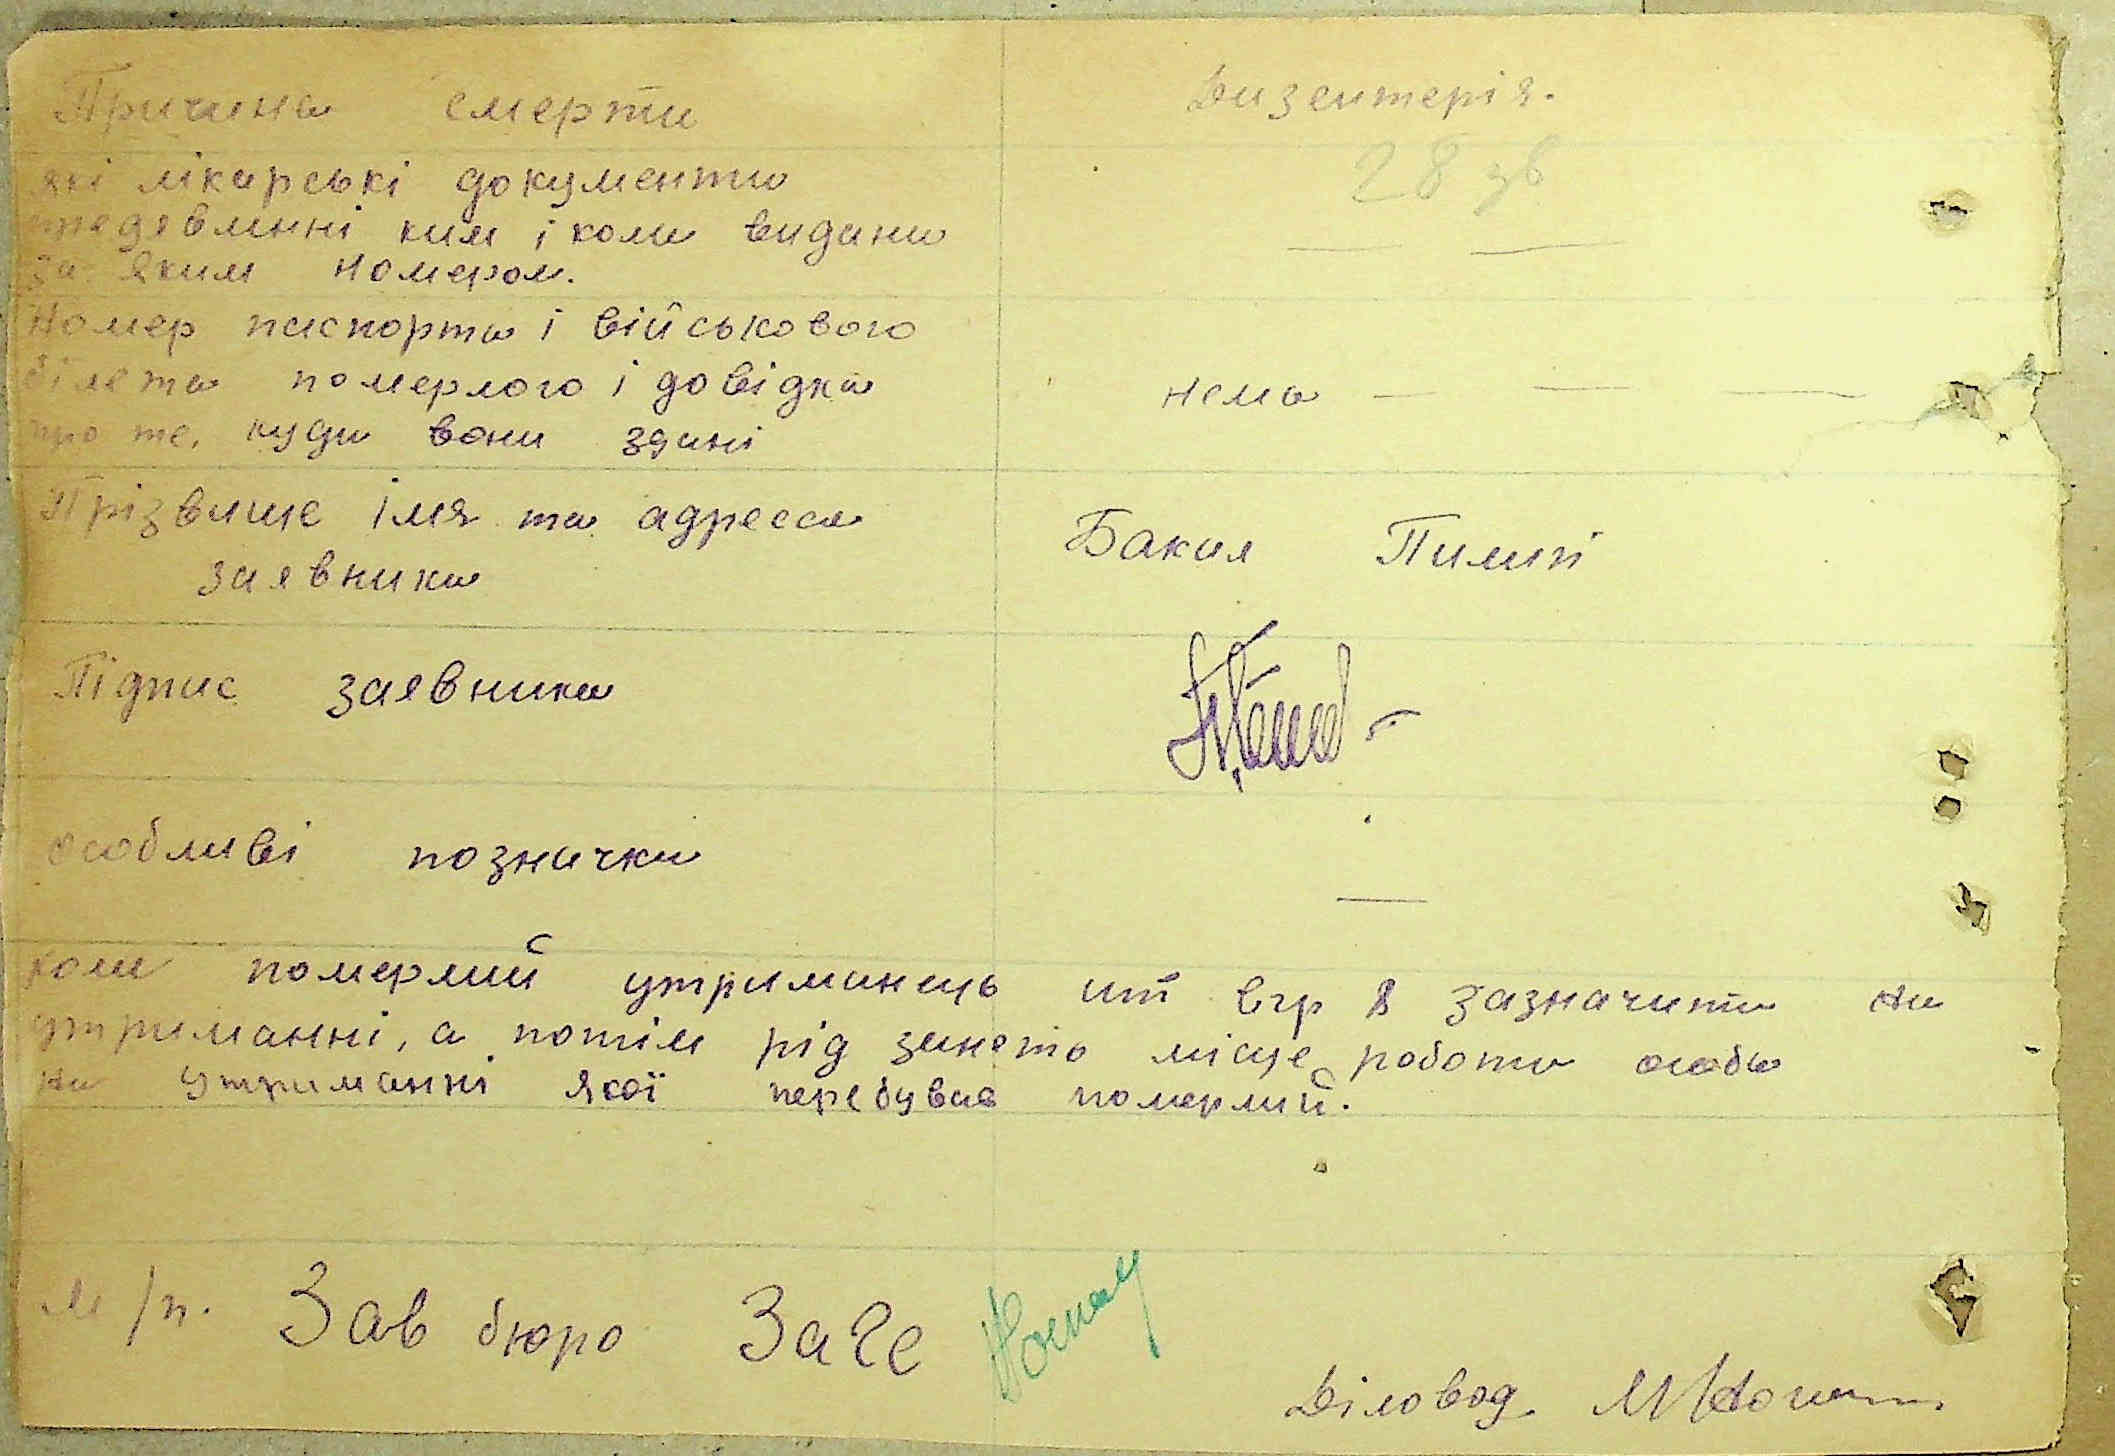 Причина смерти
Дизентерія.
28 зв
які лікарські документи
предявлині ким і коли видани
за яким номером.
Номер паспорта і військового
білета померлого і довідка
про те, куди вони здані
нема — — —
Прізвище імя та адресса
заявника
Бакал Пилип
Підпис заявника
особливі позначки
—
коли помермий утриманець ит вгр 8 зазначити на
утриманні, а потім рід занять місце роботи особи
на утриманні якої перебував померлий.
м/п. Зав бюро ЗаГс
Діловод